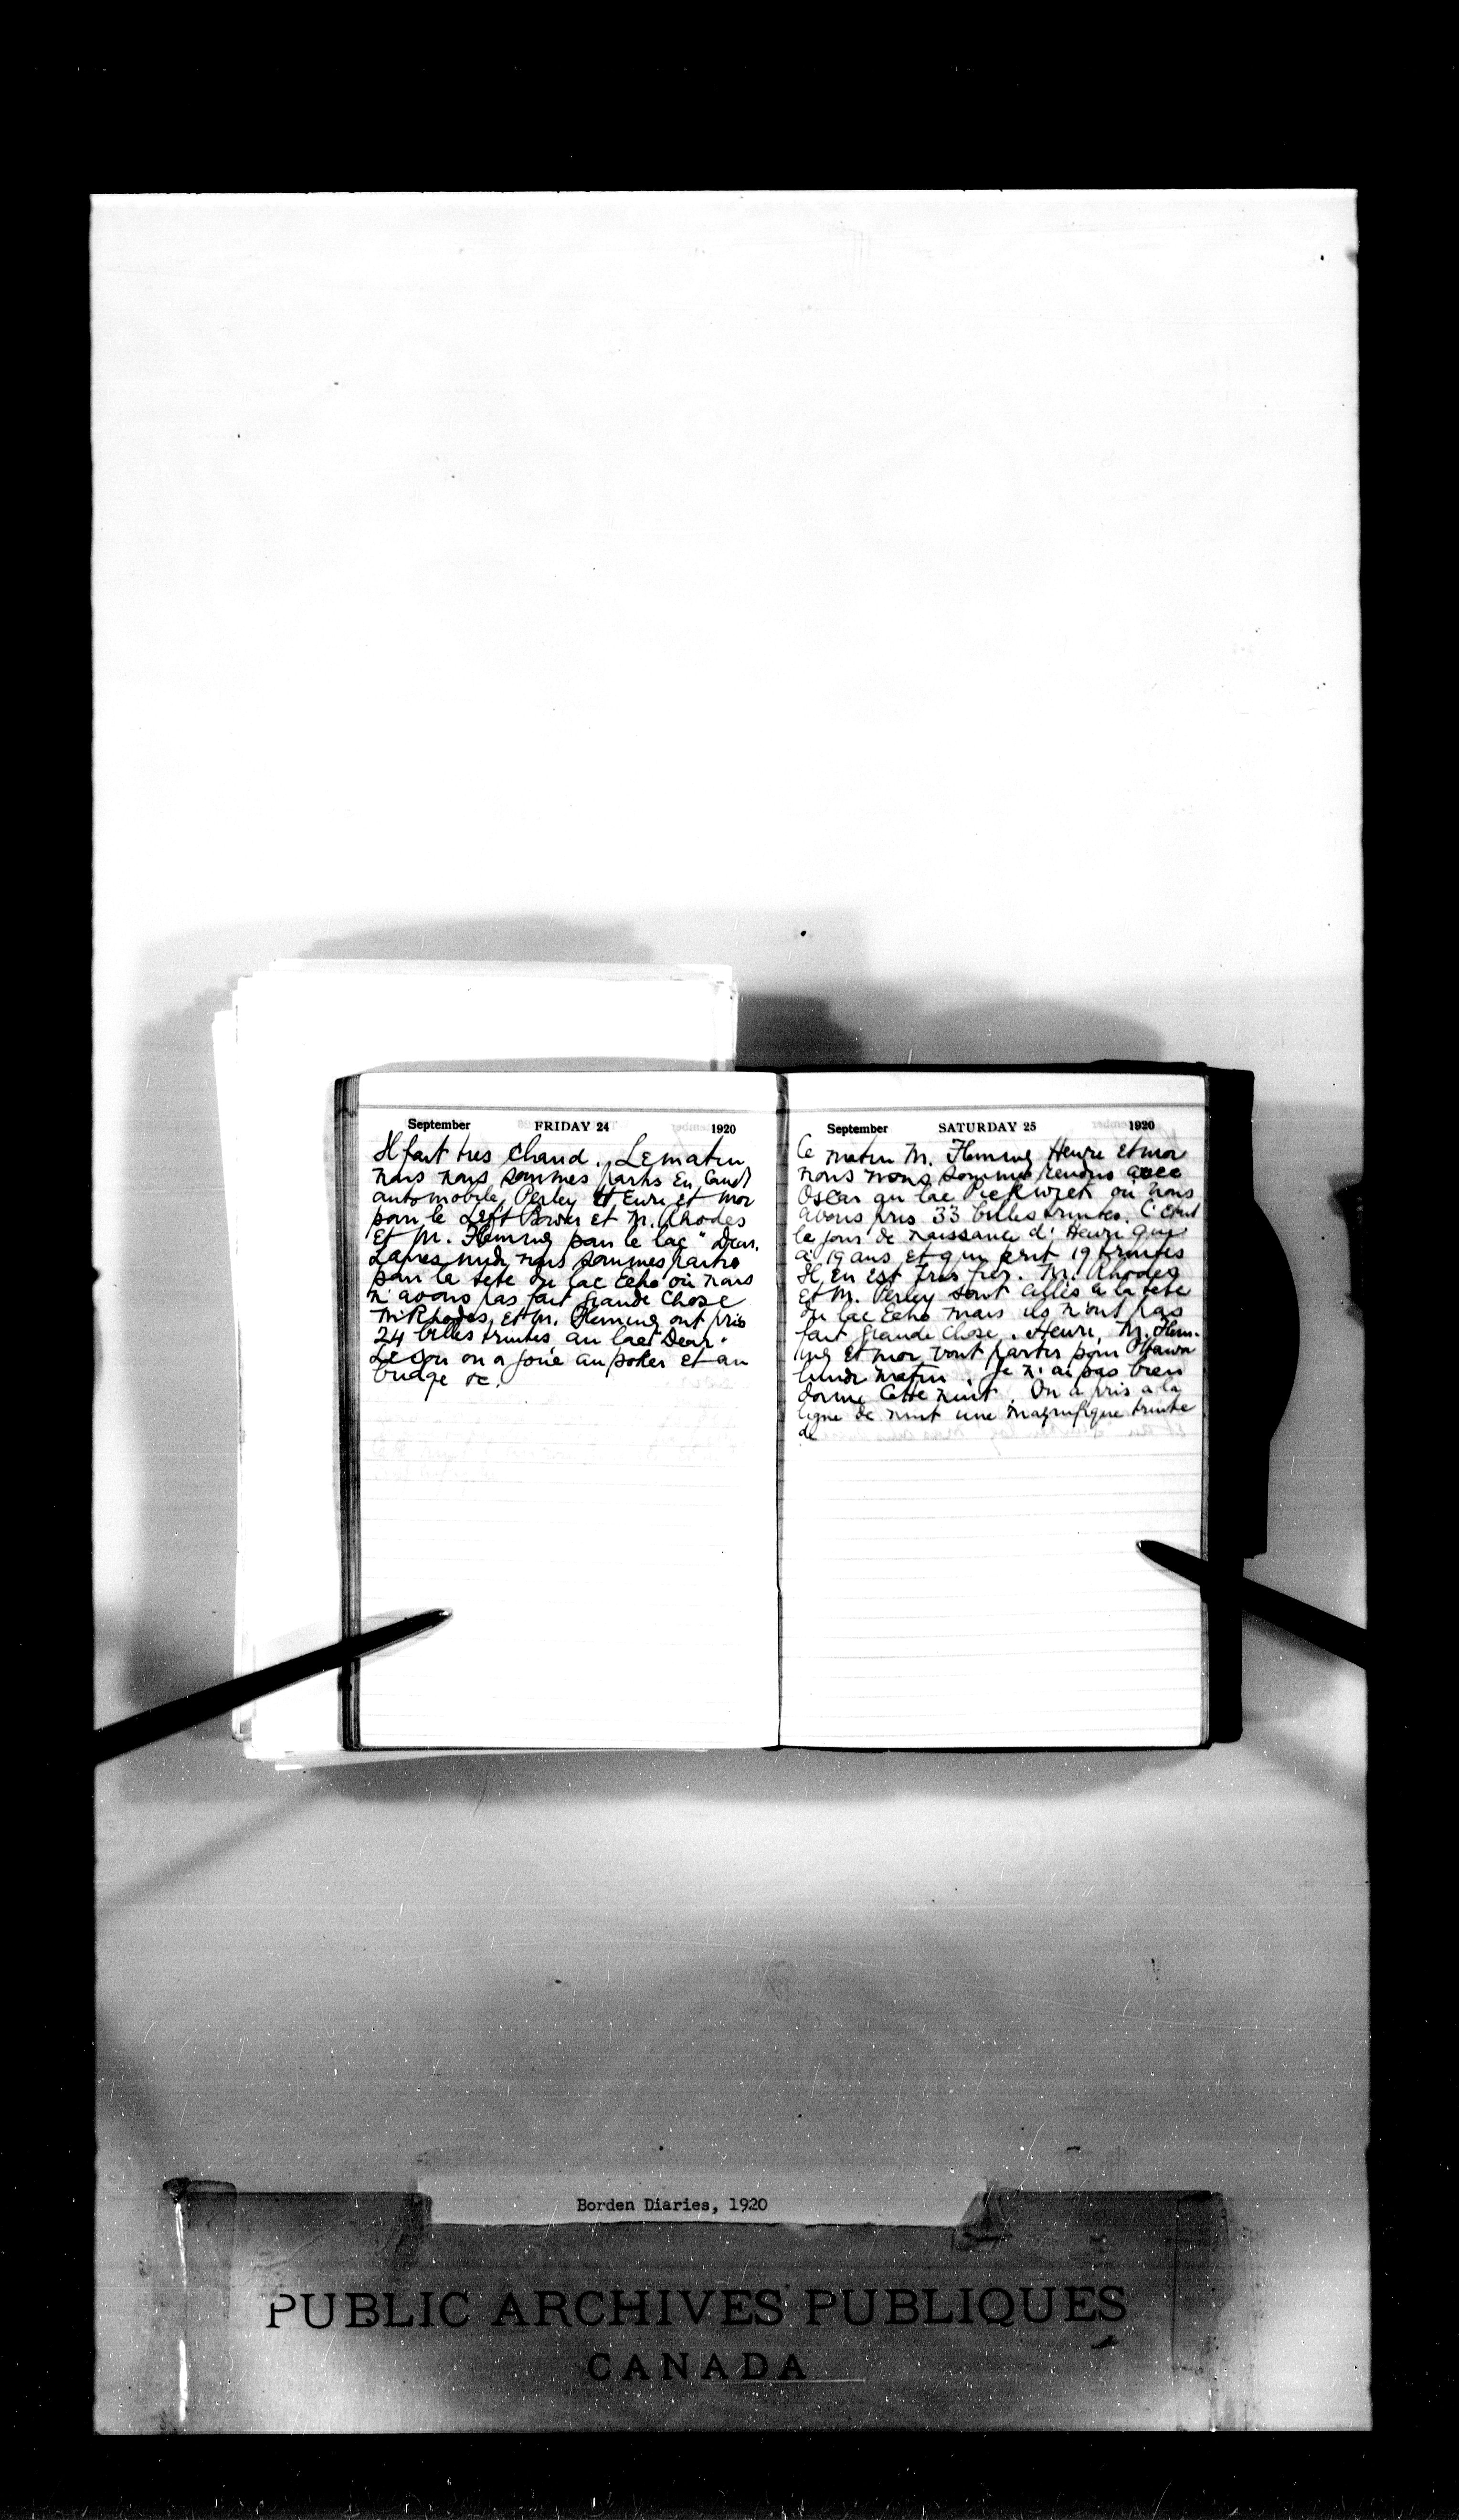 September FRIDAY 24 1920
Il fait tres chaud. Le matin
nous nous sommes partis en canot
automobile, Perley Henri et moi
pour le Left Bower et M. Rhodes
et M. Fleming pour le lac "Dear.
L'apres midi nous sommes partis
pour la tete du lac Echo où nous
n'avons pas fait grande chose
M. Rhodes, et M. Fleming ont pris
24 belles truites au lac "Dear"
Le soir on a joué au poker et au
bridge &c.
September SATURDAY 25 1920
Ce matin M. Fleming Henri et moi
nous nous sommes rendus avec
Oscar au lac où nous
avons pris 33 belles truites. C'etait
le jour de naissance d'Henri qui
a 19 ans et qui prit 19 truites
Il en est tres fier. M. Rhodes
et M. Perley sont allés à la tete
du lac Echo mais ils n'ont pas
fait grande chose. Henri, M. Flem-
ing et moi vont partir pour Ottawa
lundi matin. Je n'ai pas bien
dormi cette nuit. On a pris a la
ligne de nuit une magnifique truite
de
Borden Diaries, 1920
PUBLIC ARCHIVES PUBLIQUES
CANADA